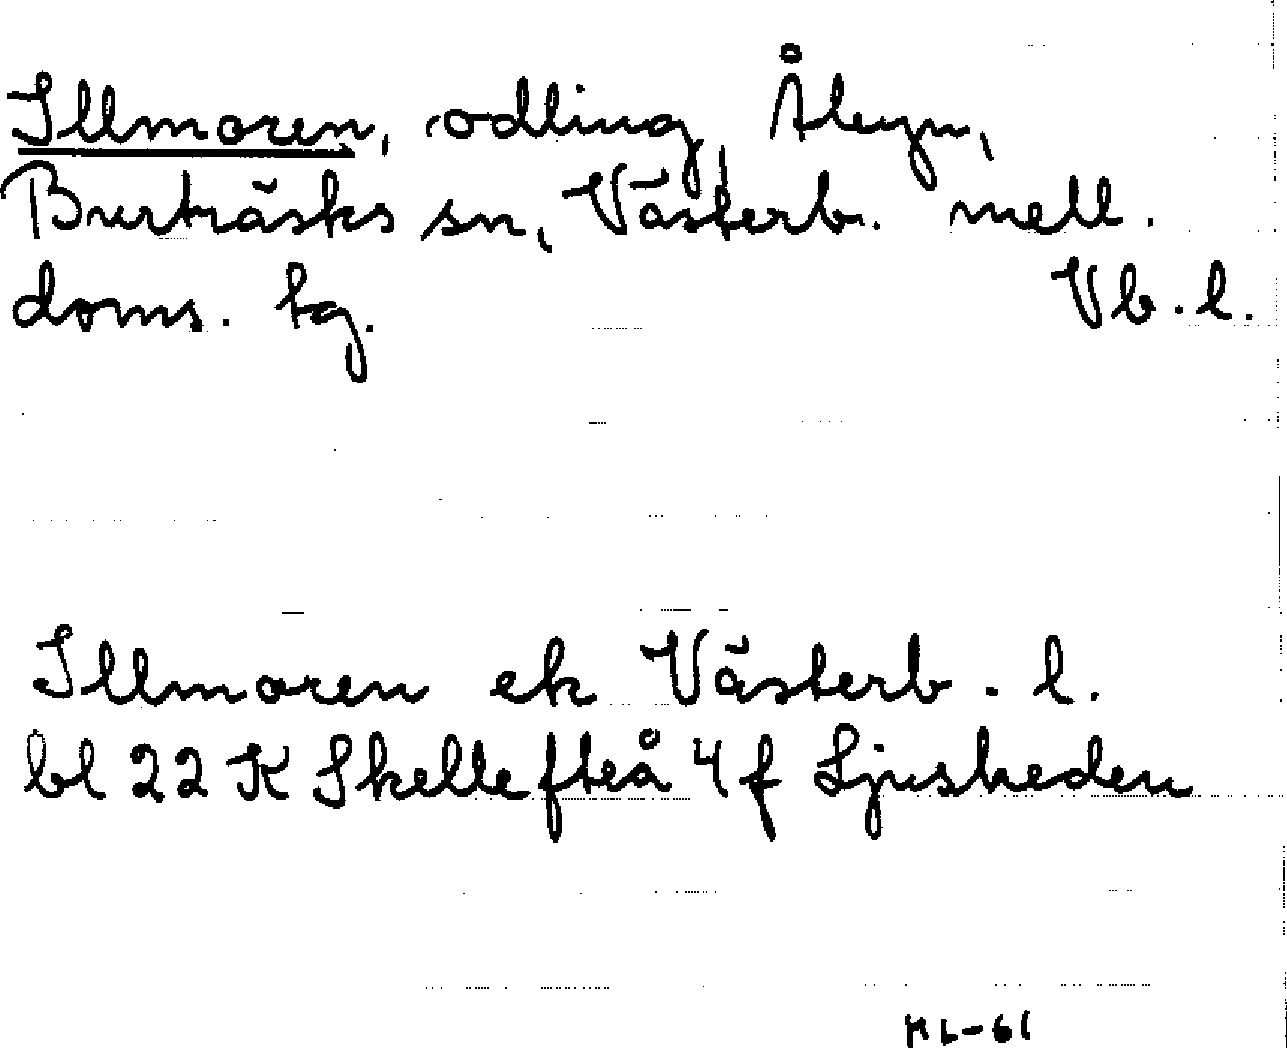 Illmoren, odling, Åbyn,
Burträsks sn, Västerb. mell.
doms. tg. Vb. l.
Illmoren ek Västerb. l.
bl 22 K Skellefteå 4 f Ljusheden
ML-61